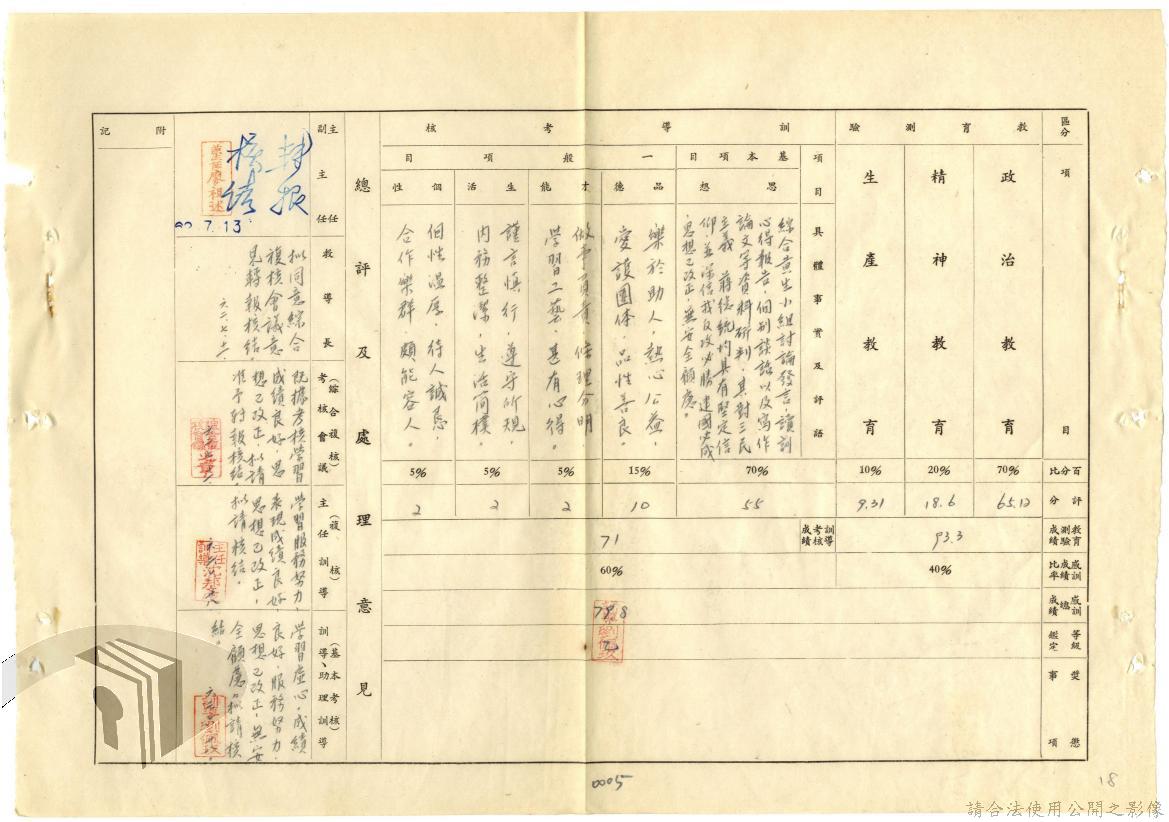 區分
項目
教育測驗
政治教育
精神教育
生產教育
百分比
70%
20%
10%
評分
65.12
18.6
9.31
教育測驗成績
93.3
感訓成績比率
40%
60%
感訓總成績
79.8
等級鑑定
乙
獎懲事項
訓導考核
項目
具體事實及評語
基本項目
思想
綜合黃生小組討論發言,讀訓
心得報告,個別談話以及寫作
論文等資料研判,其對三民
主義 蔣總統均具有堅定信
仰並深信我反攻必勝建國必成
思想已改正,無安全顧慮。
70%
55
一般項目
品德
樂於助人,熱心公益,
愛護團体,品性善良。
15%
10
才能
做事負責,條理分明
學習工藝,甚有心得。
5%
2
生活
謹言慎行,遵守所規,
內務整潔,生活簡樸。
5%
2
個性
個性溫厚,待人誠懇,
合作樂群,頗能容人。
5%
2
訓導考核成績
71
總評及處理意見
主任
副主任
轉報
核結
62.7.13
教導長
擬同意綜合
複核會議意
見轉報核結。
(綜合複核)
考核會議
既據考核學習
成績良好,思
想已改正,擬請
准予轉報核結。
(複核)
主任訓導
學習服務努力,
表現成績良好,
思想已改正,
擬請核結。
(基本考核)
訓導、助理訓導
學習虛心,成績
良好,服務努力,
思想已改正,無安
全顧慮,擬請核
結。
附記
0005
18
請合法使用公開之影像